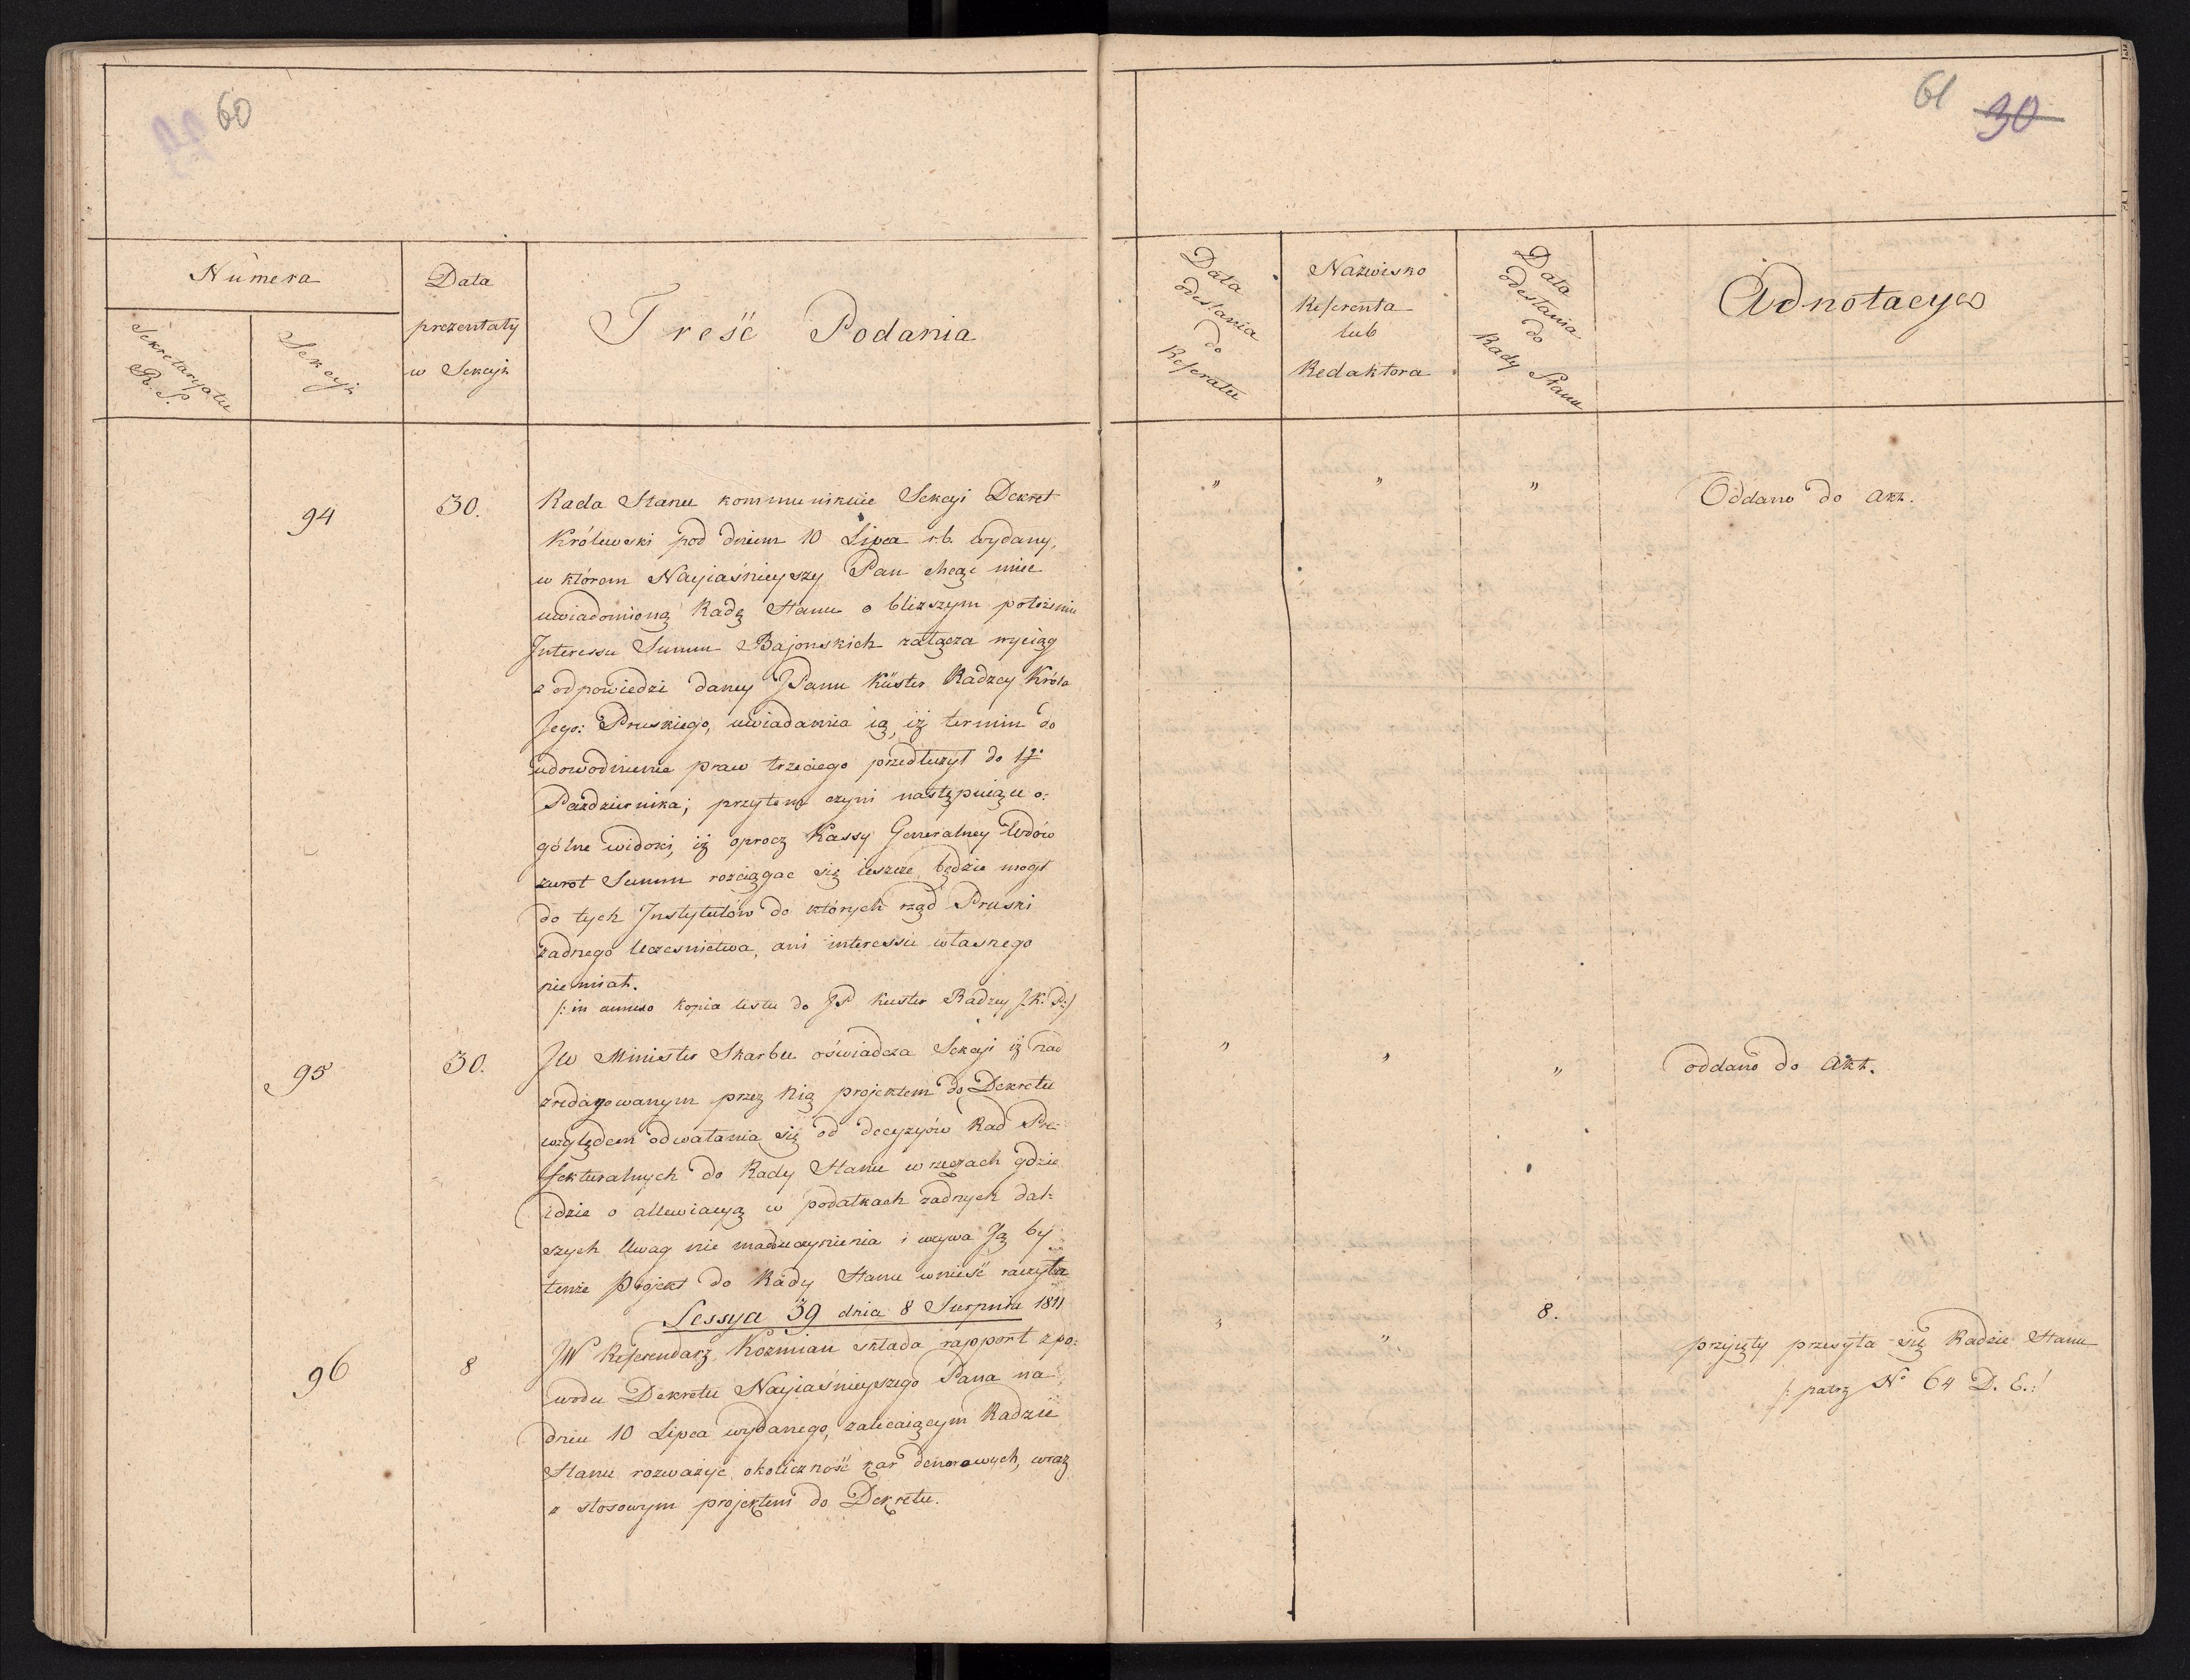 60
61 30
Numera
Sekretaryatu
R. S.
Sekcyi
Data
prezentaty
w Sekcyi
Treść Podania
Data
odesłania
do
Referatu
Nazwisko
Referenta
lub
Redaktora
Data
odesłania
do
Rady Stanu
Adnotacye
94 30. Rada Stanu kommunikuie Sekcyi Dekret " " " Oddano do Akt.
Królewski pod dniem 10 Lipca r.b. wydany,
w którem Nayiaśnieyszy Pan chcąc mieć
uwiadomioną Radę Stanu o bliższym położeniu
Interessu Summ Bajonskich załącza wyciąg
z odpowiedzi daney JPanu Küster Radzcy Króla
Jego: Pruskiego, uwiadamia ią, iż termin do
udowodnienia praw trzeciego przedłużył do 1go
Pazdziernika; przytem czyni następuiące o:
gólne widoki, iż oprocz Kassy Generalney Wdów
zwrot Summ rozciągac się ieszcze będzie mogł
do tych Instytutów do których rząd Pruski
żadnego Uczesnictwa, ani interessu własnego
nie miał.
/: in annexo kopia listu do JP Kuster Radzcy J. K. P:/
95 30. JW Minister Skarbu oświadcza Sekcyi iż nad " " " oddano do Akt.
zredagowanym przez Nią projektem do Dekretu
względem odwołania się od decyzyów Rad Pre:
fekturalnych do Rady Stanu w rzeczach gdzie
idzie o allewiacyą w podatkach żadnych dal:
szych Uwag nie ma do uczynienia i wzywa Ją by
tenże Projekt do Rady Stanu wnieść raczyła
Sessya 39 dnia 8 Sierpnia 1811
96 8 JW Referendarz Koźmian składa rapport z po: " " 8. przyięty przesyła się Radzie Stanu
wodu Dekretu Nayiaśnieyszego Pana na /: patrz No 64 D. E.:/
dniu 10 Lipca wydanego, zalecaiącym Radzie
Stanu rozważyć okoliczność kar
wraz
z stosowym projektem do Dekretu.